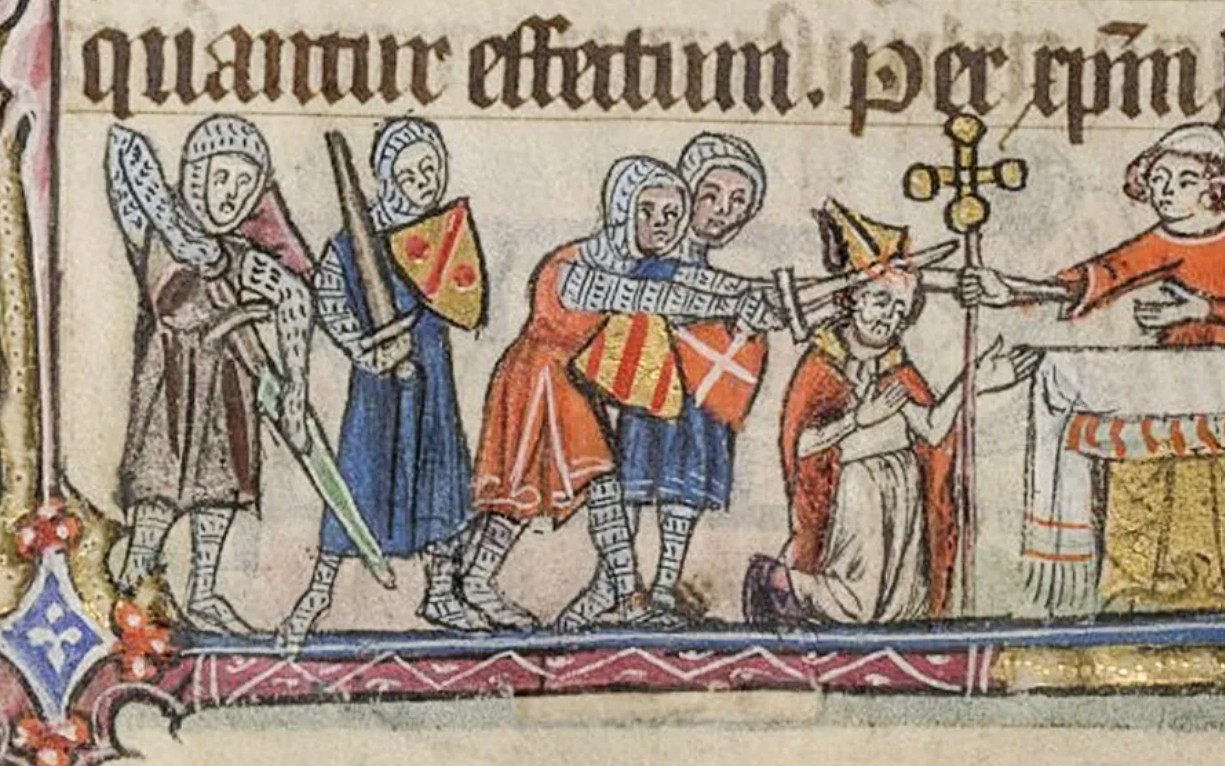 quantur effectum. Per xp̄m